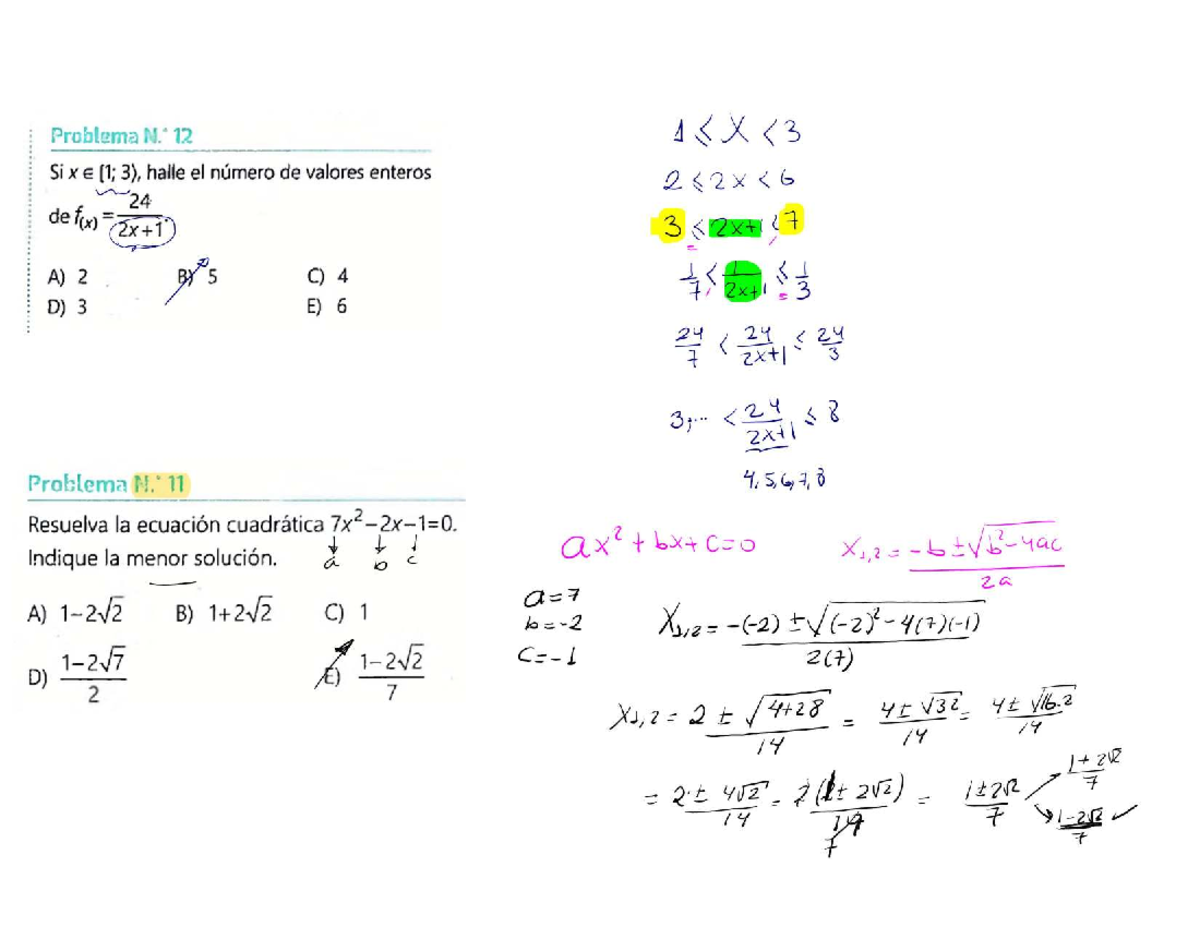 Problema N.° 12
Si x ∈ [1; 3⟩, halle el número de valores enteros
de f(x) = 24/(2x+1).
A) 2
B) 5
C) 4
D) 3
E) 6
1 ≤ x < 3
2 ≤ 2x < 6
3 ≤ 2x+1 < 7
1/7 < 1/(2x+1) ≤ 1/3
24/7 < 24/(2x+1) ≤ 24/3
3,... < 24/(2x+1) ≤ 8
4, 5, 6, 7, 8
Problema N.° 11
Resuelva la ecuación cuadrática 7x²−2x−1=0.
Indique la menor solución.
a b c
A) 1−2√2
B) 1+2√2
C) 1
D) (1−2√7)/2
E) (1−2√2)/7
ax² + bx + c = 0
x1,2 = (−b ± √(b²−4ac))/2a
a=7
b=−2
c=−1
X1,2 = (−(−2) ± √((−2)²−4(7)(−1)))/2(7)
X1,2 = (2 ± √(4+28))/14 = (4 ± √32)/14 = (4 ± √(16.2))/14
= (2 ± 4√2)/14 = 2(1 ± 2√2)/14 = (1 ± 2√2)/7
7
(1+2√2)/7
(1−2√2)/7 ✓